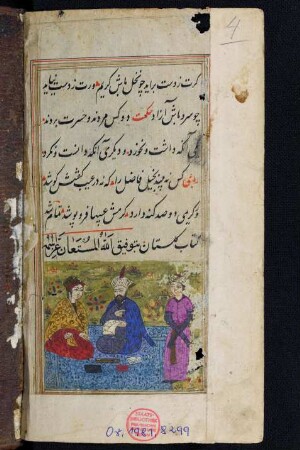 4
گرت ز دست برآید چو نخل باش کریم ورت ز دست نیاید
چو سرو باش آزاد حکمت دو کس مردند و حسرت بردند
یکی آنکه داشت و نخورد و دیگری آنکه دانست و نکرد
کس نه بیند بخیل فاضل را که نه در عیب گفتنش کوشد
ور کریمی دو صد گنه دارد کرمش عیبها فرو پوشد
کتاب گلستان بتوفیق الله المستعان
Or. 1981 8299